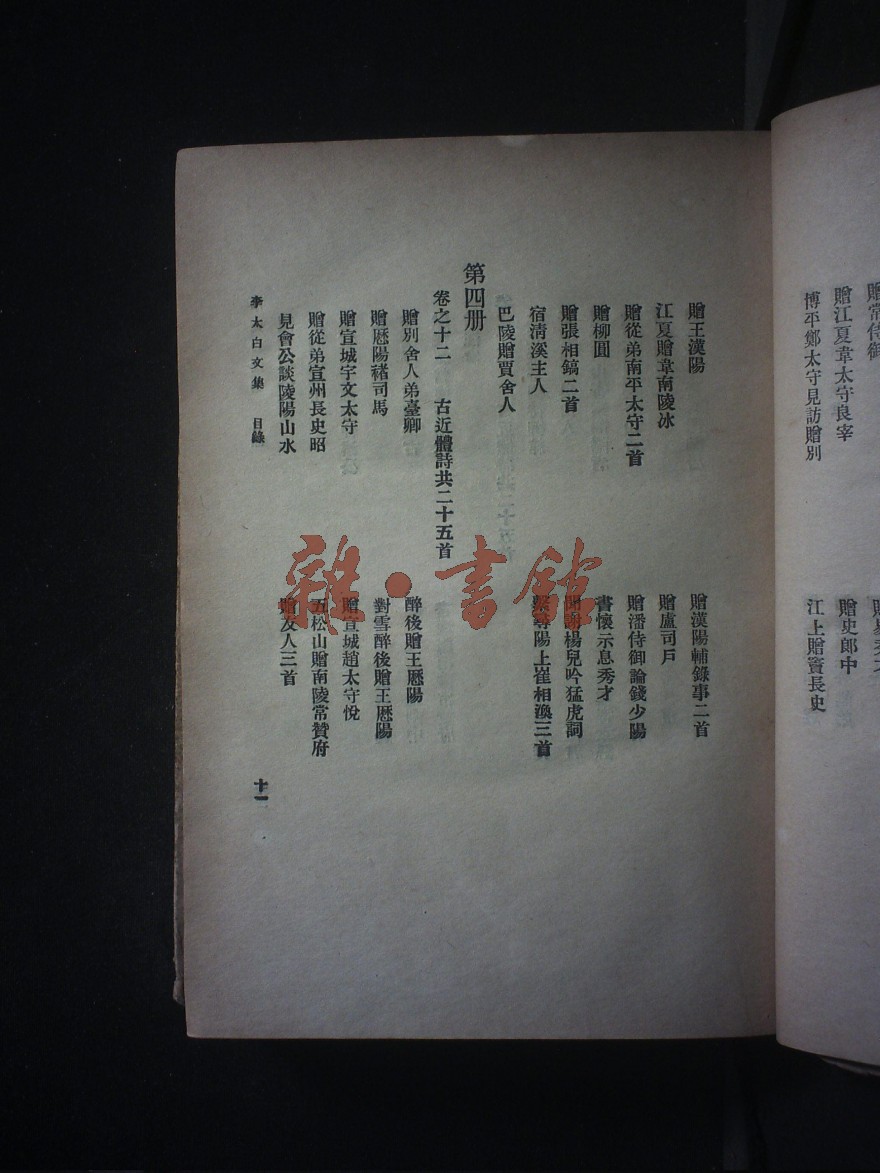 贈常侍御
贈江夏韋太守良宰
贈史郎中
博平鄭太守見訪贈別
江上贈竇長史
贈王漢陽
贈漢陽輔錄事二首
江夏贈韋南陵冰
贈盧司戶
贈從弟南平太守二首
贈潘侍御論錢少陽
贈柳圓
書懷示息秀才
贈張相鎬二首
聞謝楊兒吟猛虎詞
宿清溪主人
繫尋陽上崔相渙三首
巴陵贈賈舍人
第四册
卷之十二 古近體詩共二十五首
贈別舍人弟臺卿
醉後贈王歷陽
贈歷陽褚司馬
對雪醉後贈王歷陽
贈宣城宇文太守
贈宣城趙太守悅
贈從弟宣州長史昭
五松山贈南陵常贊府
見會公談陵陽山水
贈友人三首
李太白文集 目錄
十一
雜·書館